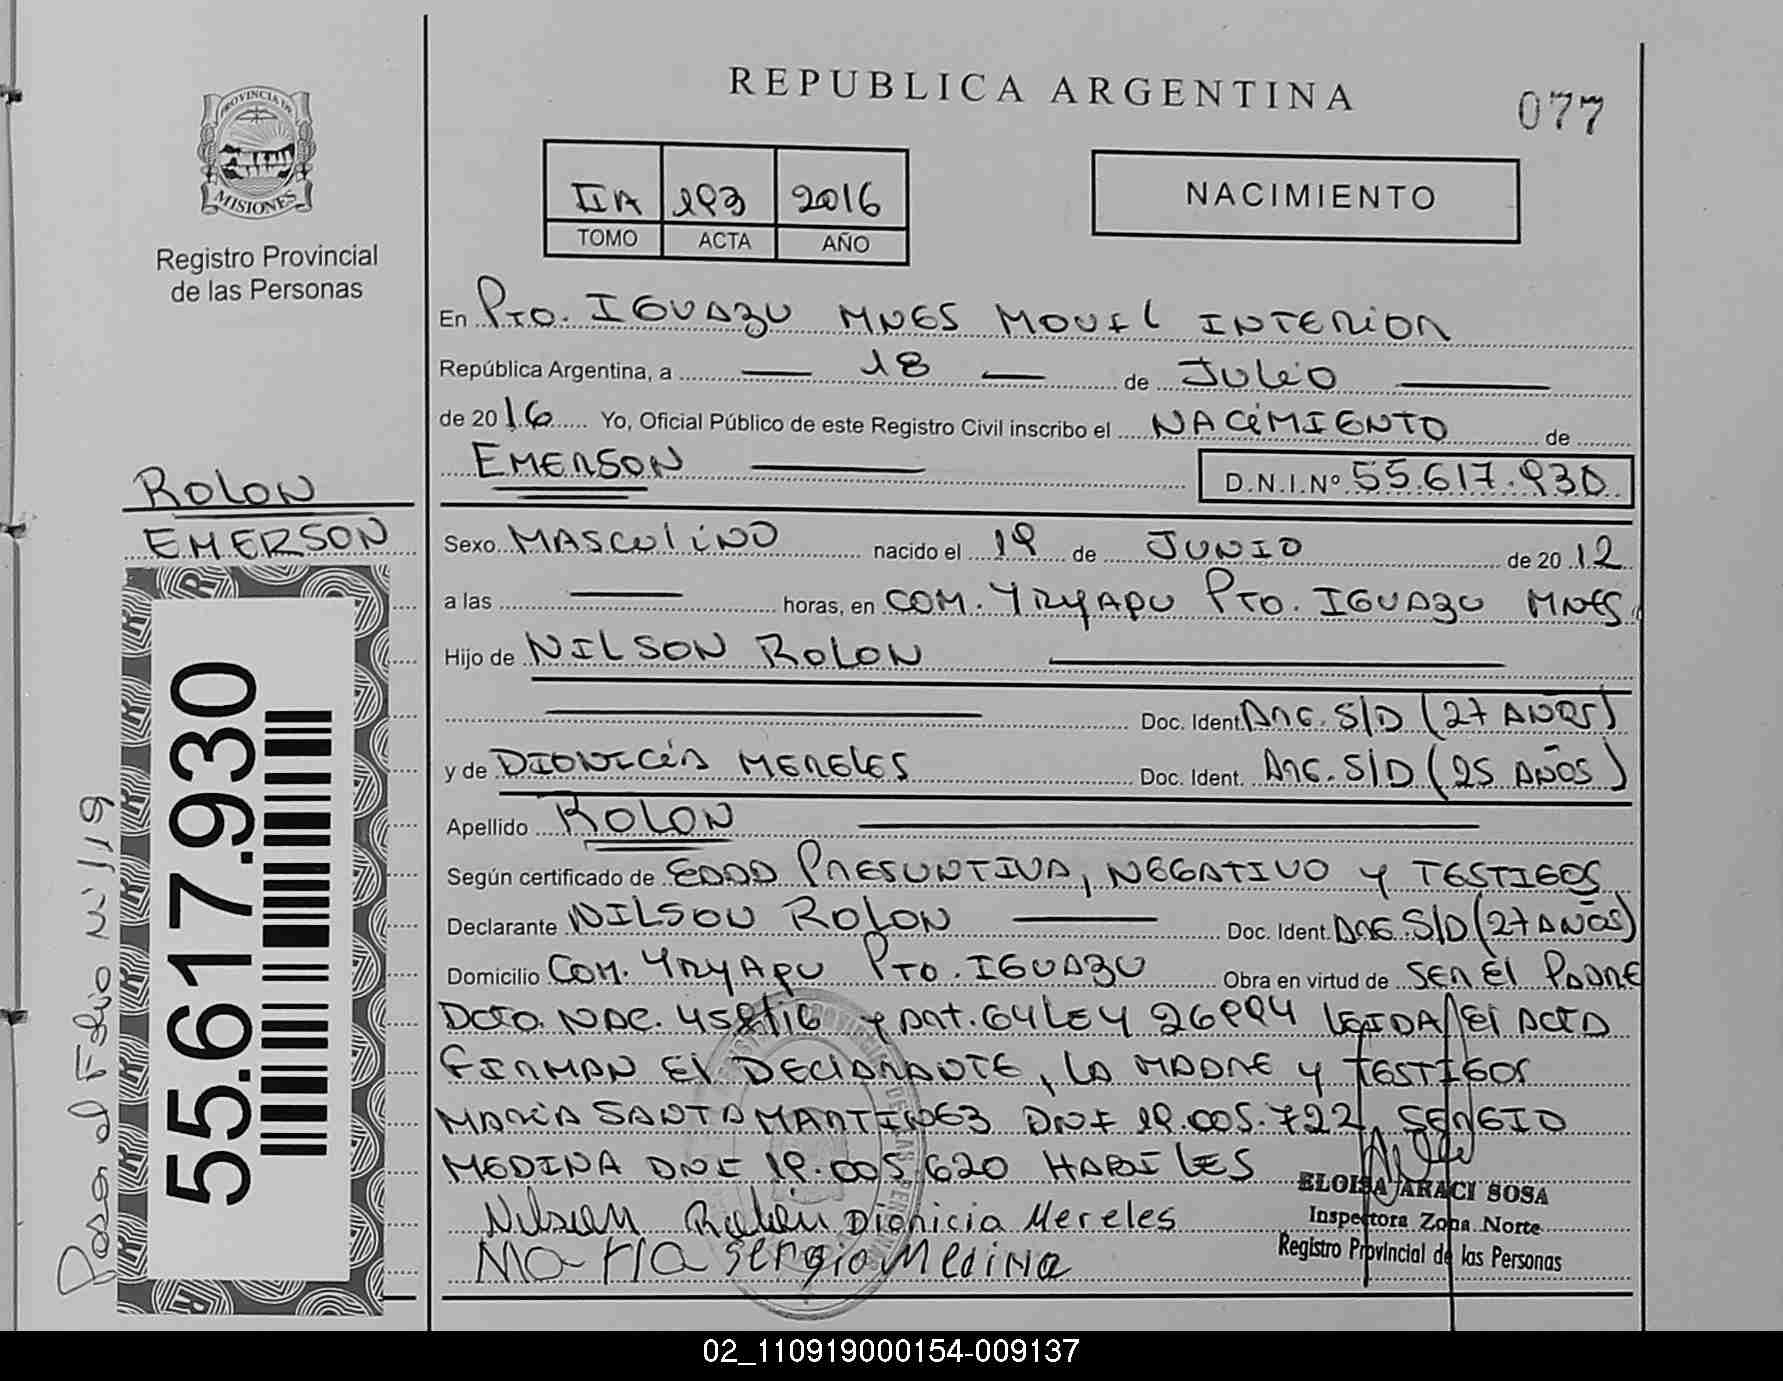 REPUBLICA ARGENTINA
077
PROVINCIA DE
MISIONES
Registro Provincial
de las Personas
IIA 193 2016
TOMO ACTA AÑO
NACIMIENTO
En PTO. IGUAZU MNES MOVIL INTERIOR
República Argentina, a 18 de JULIO
de 2016 Yo, Oficial Público de este Registro Civil inscribo el NACIMIENTO de
EMERSON D.N.I.Nº 55.617.930
ROLON
EMERSON
Sexo MASCULINO nacido el 19 de JUNIO de 2012
a las horas, en COM. YRYAPU PTO. IGUAZU MNES
Hijo de NILSON ROLON
Doc. Ident. ARG. S/D (27 AÑOS)
y de DIONICIA MERELES Doc. Ident. ARG. S/D (25 AÑOS)
Apellido ROLON
Según certificado de EDAD PRESUNTIVA, NEGATIVO Y TESTIGOS
Declarante NILSON ROLON Doc. Ident. ARG. S/D (27 AÑOS)
Domicilio COM. YRYAPU PTO. IGUAZU Obra en virtud de SER EL PADRE
DCTO. NAC. 458/16 Y ART. 64 LEY 26994 LEIDA EL ACTA
FIRMAN EL DECLARANTE, LA MADRE Y TESTIGOS
MARIA SANTA MARTINEZ DNI 19.005.722, SERGIO
MEDINA DNI 19.005.620 HABILES
Dionicia Mereles
Maria Sergio Medina
ELOISA ARACI SOSA
Inspectora Zona Norte
Registro Provincial de las Personas
55.617.930
Pasa al Folio Nº 119
02_110919000154-009137